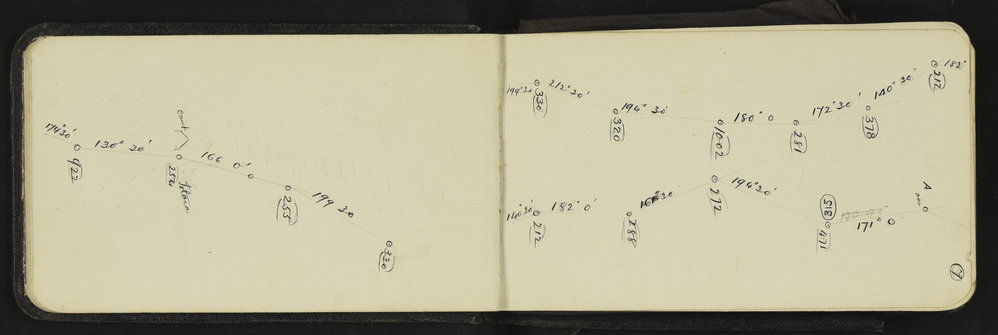 174° 30'
922
130° 30'
camp
254
166 0'
255
199 30
330
199° 30
330
212° 30'
320
194° 30'
1002
180° 0
281
172° 30'
378
140° 30'
212
182°
140° 30'
212
182° 0'
288
30
272
194° 30'
518
471
171° 0
A
7